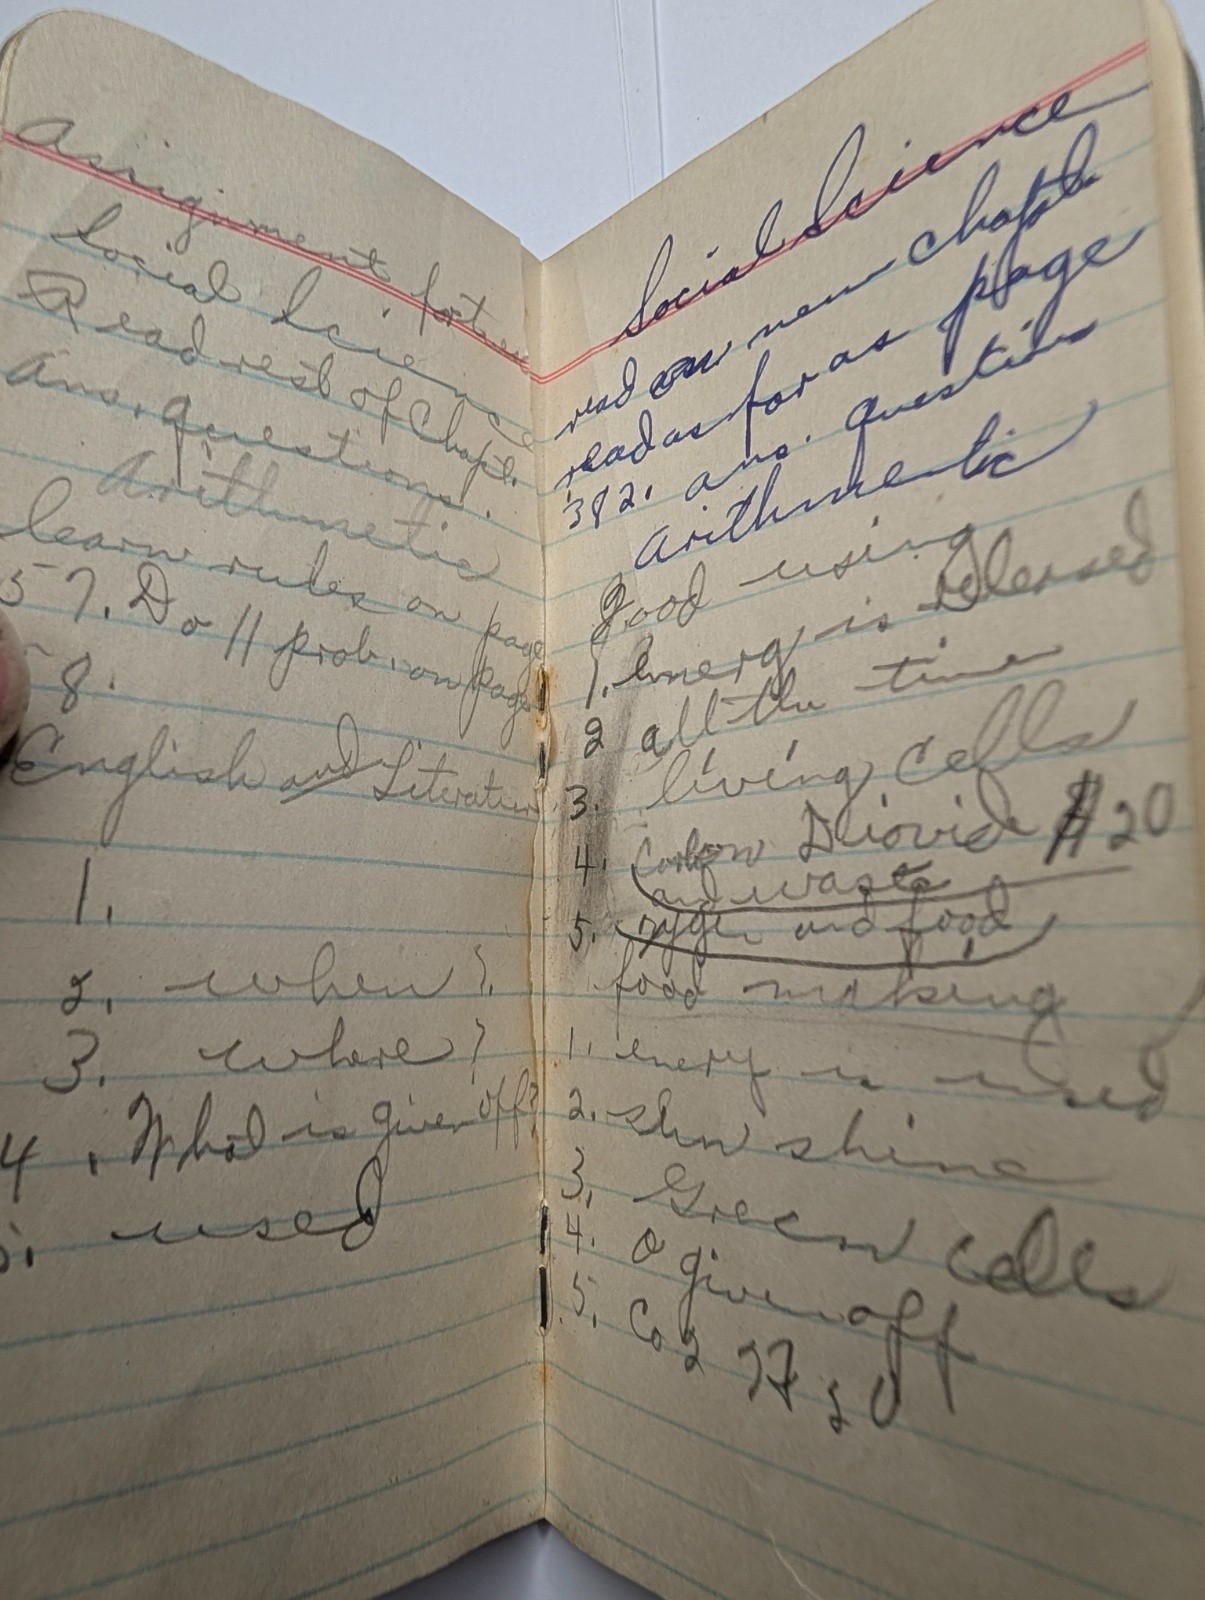 Assignment for
Social Science
Read rest of Chapt.
Ans. questions.
Arithmetic
learn rules on page
57. Do 11 prob. on page
58.
English and Literature
1.
2. when?
3. where?
4. What is given off?
5. used
Social Science
read new chapt.
read as far as page
382. ans. questions
Arithmetic
good using
1. energ is relersed
2 all the time
3. living cells
4. Carbon Dioxide H20
and waste
5. oxygen and food
food making
1. enery is used
2. sun shine
3. Green cells
4. O given off
5. Co2 H20